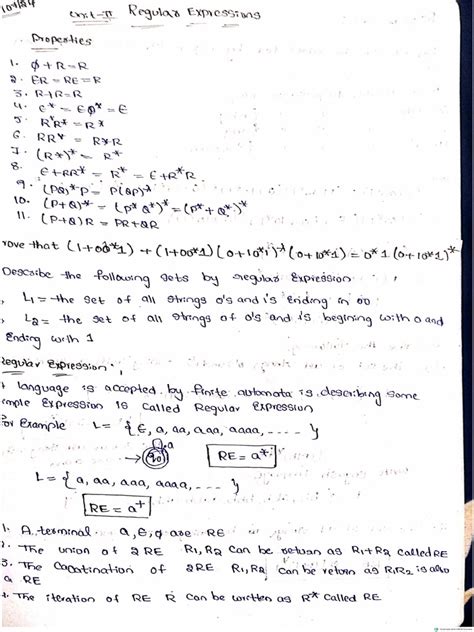 10/1/24
Unit-II Regular Expressions
Properties
1. ∅+R=R
2. ER = RE = R
3. R+R=R
4. ∈* = ∈∅* = ∈
5. R*R* = R*
6. RR* = R*R
7. (R*)* = R*
8. ∈+RR* = R* = ∈+R*R
9. (PQ)*P = P(QP)*
10. (P+Q)* = (P*Q*)* = (P*+Q*)*
11. (P+Q)R = PR+QR
rove that (1+00*1) + (1+00*1)(0+10*1)*(0+10*1) = 0*1(0+10*1)*
Describe the following sets by regular Expression
L1 = the set of all strings 0's and 1's Ending in 00
L2 = the set of all strings of 0's and 1's begining with 0 and
Ending with 1
Regular Expression
language is accepted by finite automata is describing some
imple Expression is called Regular Expression
For Example L= {∈, a, aa, aaa, aaaa, ---- }
a
q0
RE = a*
L = {a, aa, aaa, aaaa, ---- }
RE = a+
1. A terminal a, ∈, ∅ are RE
2. The union of 2RE R1, R2 can be retuen as R1+R2 called RE
3. The Cocatination of 2RE R1, R2 can be return as R1R2 is also
a RE
4. The iteration of RE R can be written as R* called RE